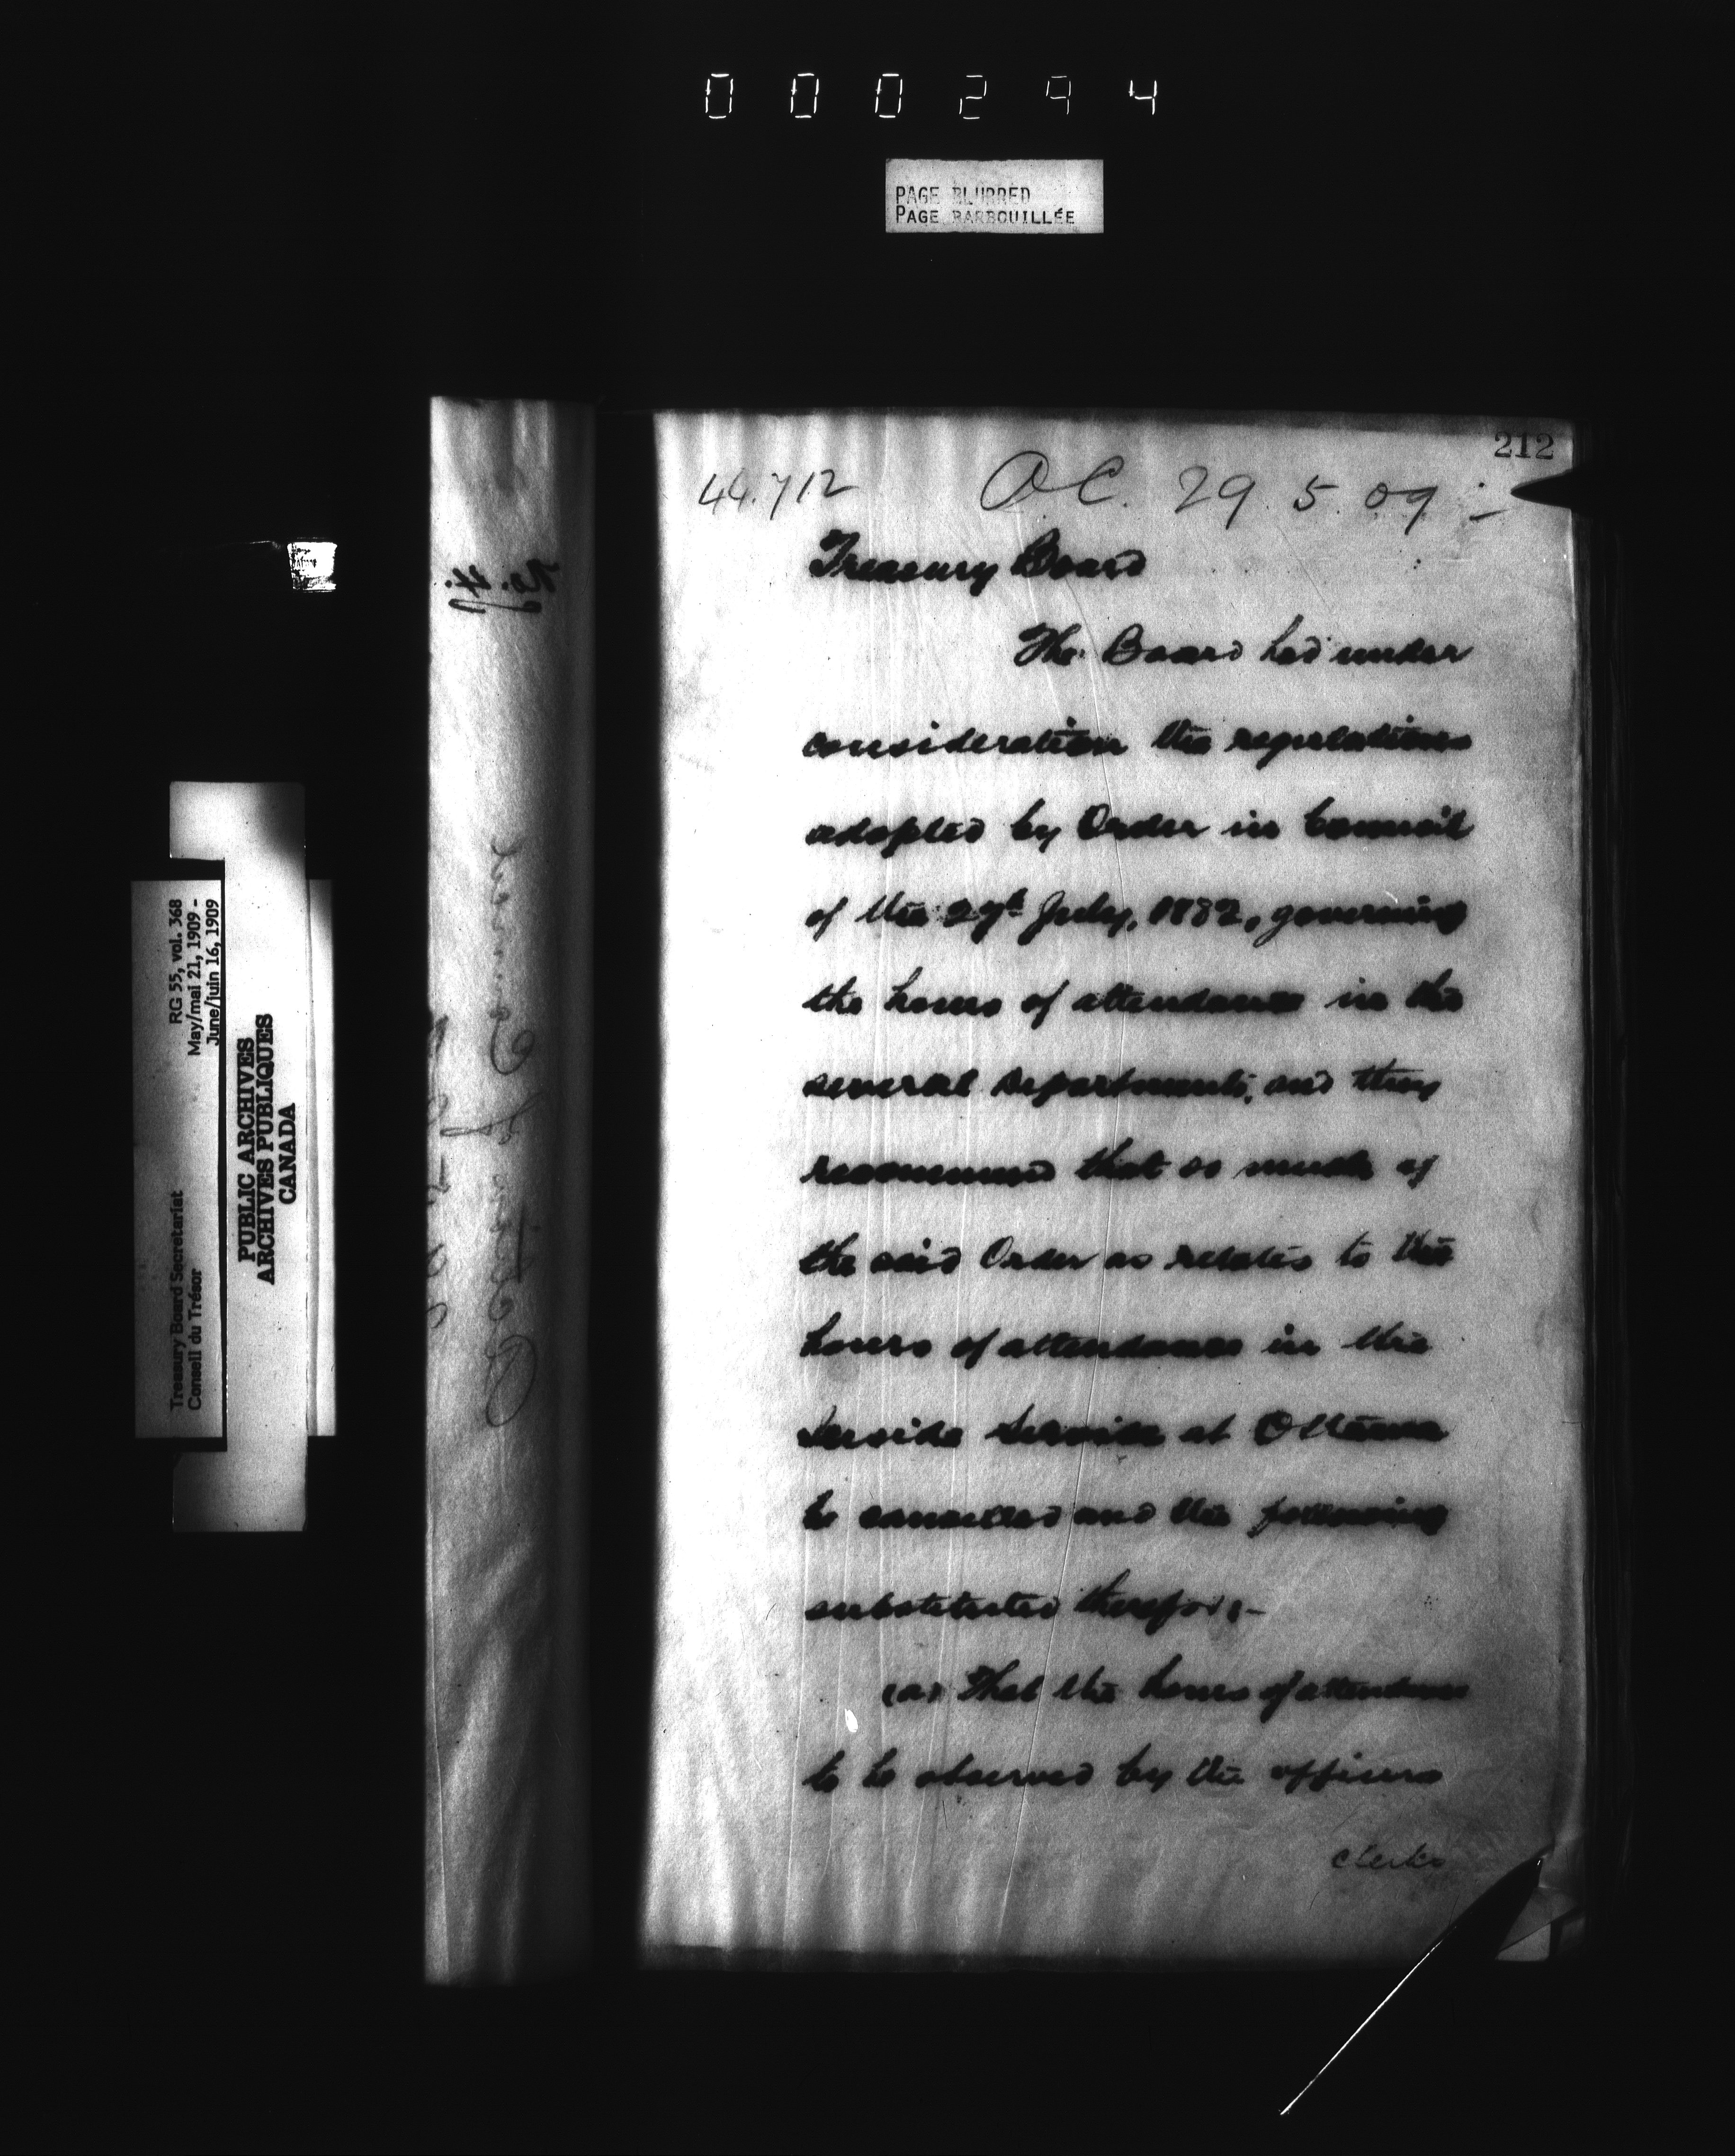 000294
PAGE BLURRED
PAGE BARBOUILLÉE
212
44.712 O.C. 29.5.09:-
Treasury Board
The Board had under
consideration the regulations
adopted by Order in Council
of the 27th July, 1882, governing
the hours of attendance in the
several departments, and they
recommend that so much of
the said Order as relates to the
hours of attendance in the
Inside Service at Ottawa
be cancelled and the following
substituted therefor:-
(a) That the hours of attendance
to be observed by the officers
clerks
No. 4.
RG 55, vol. 368
May/mai 21, 1909 -
June/juin 16, 1909
Treasury Board Secretariat
Conseil du Trésor
PUBLIC ARCHIVES
ARCHIVES PUBLIQUES
CANADA